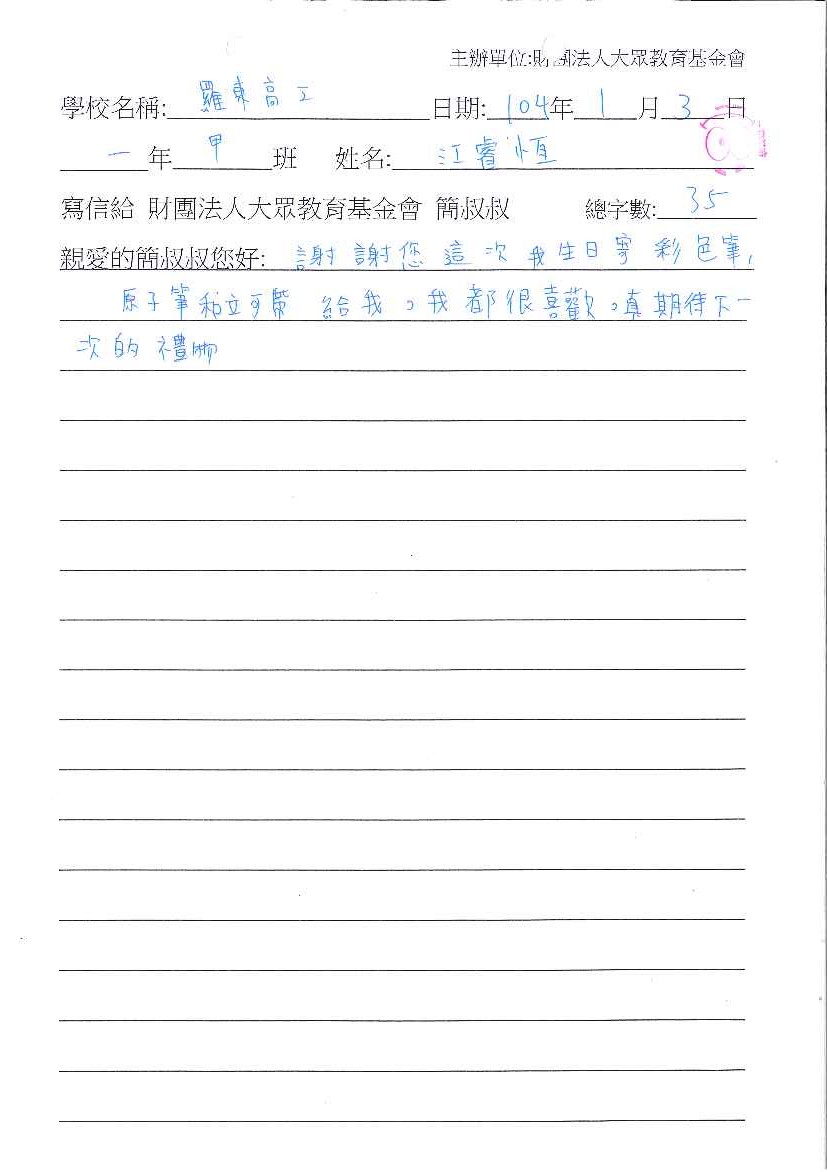 主辦單位:財團法人大眾教育基金會
學校名稱:羅東高工 日期:104年1月3日
一年甲班 姓名:江睿恆
寫信給 財團法人大眾教育基金會 簡叔叔 總字數:35
親愛的簡叔叔您好:謝謝您這次我生日寄彩色筆,
原子筆和立可帶給我。我都很喜歡。真期待下一
次的禮物